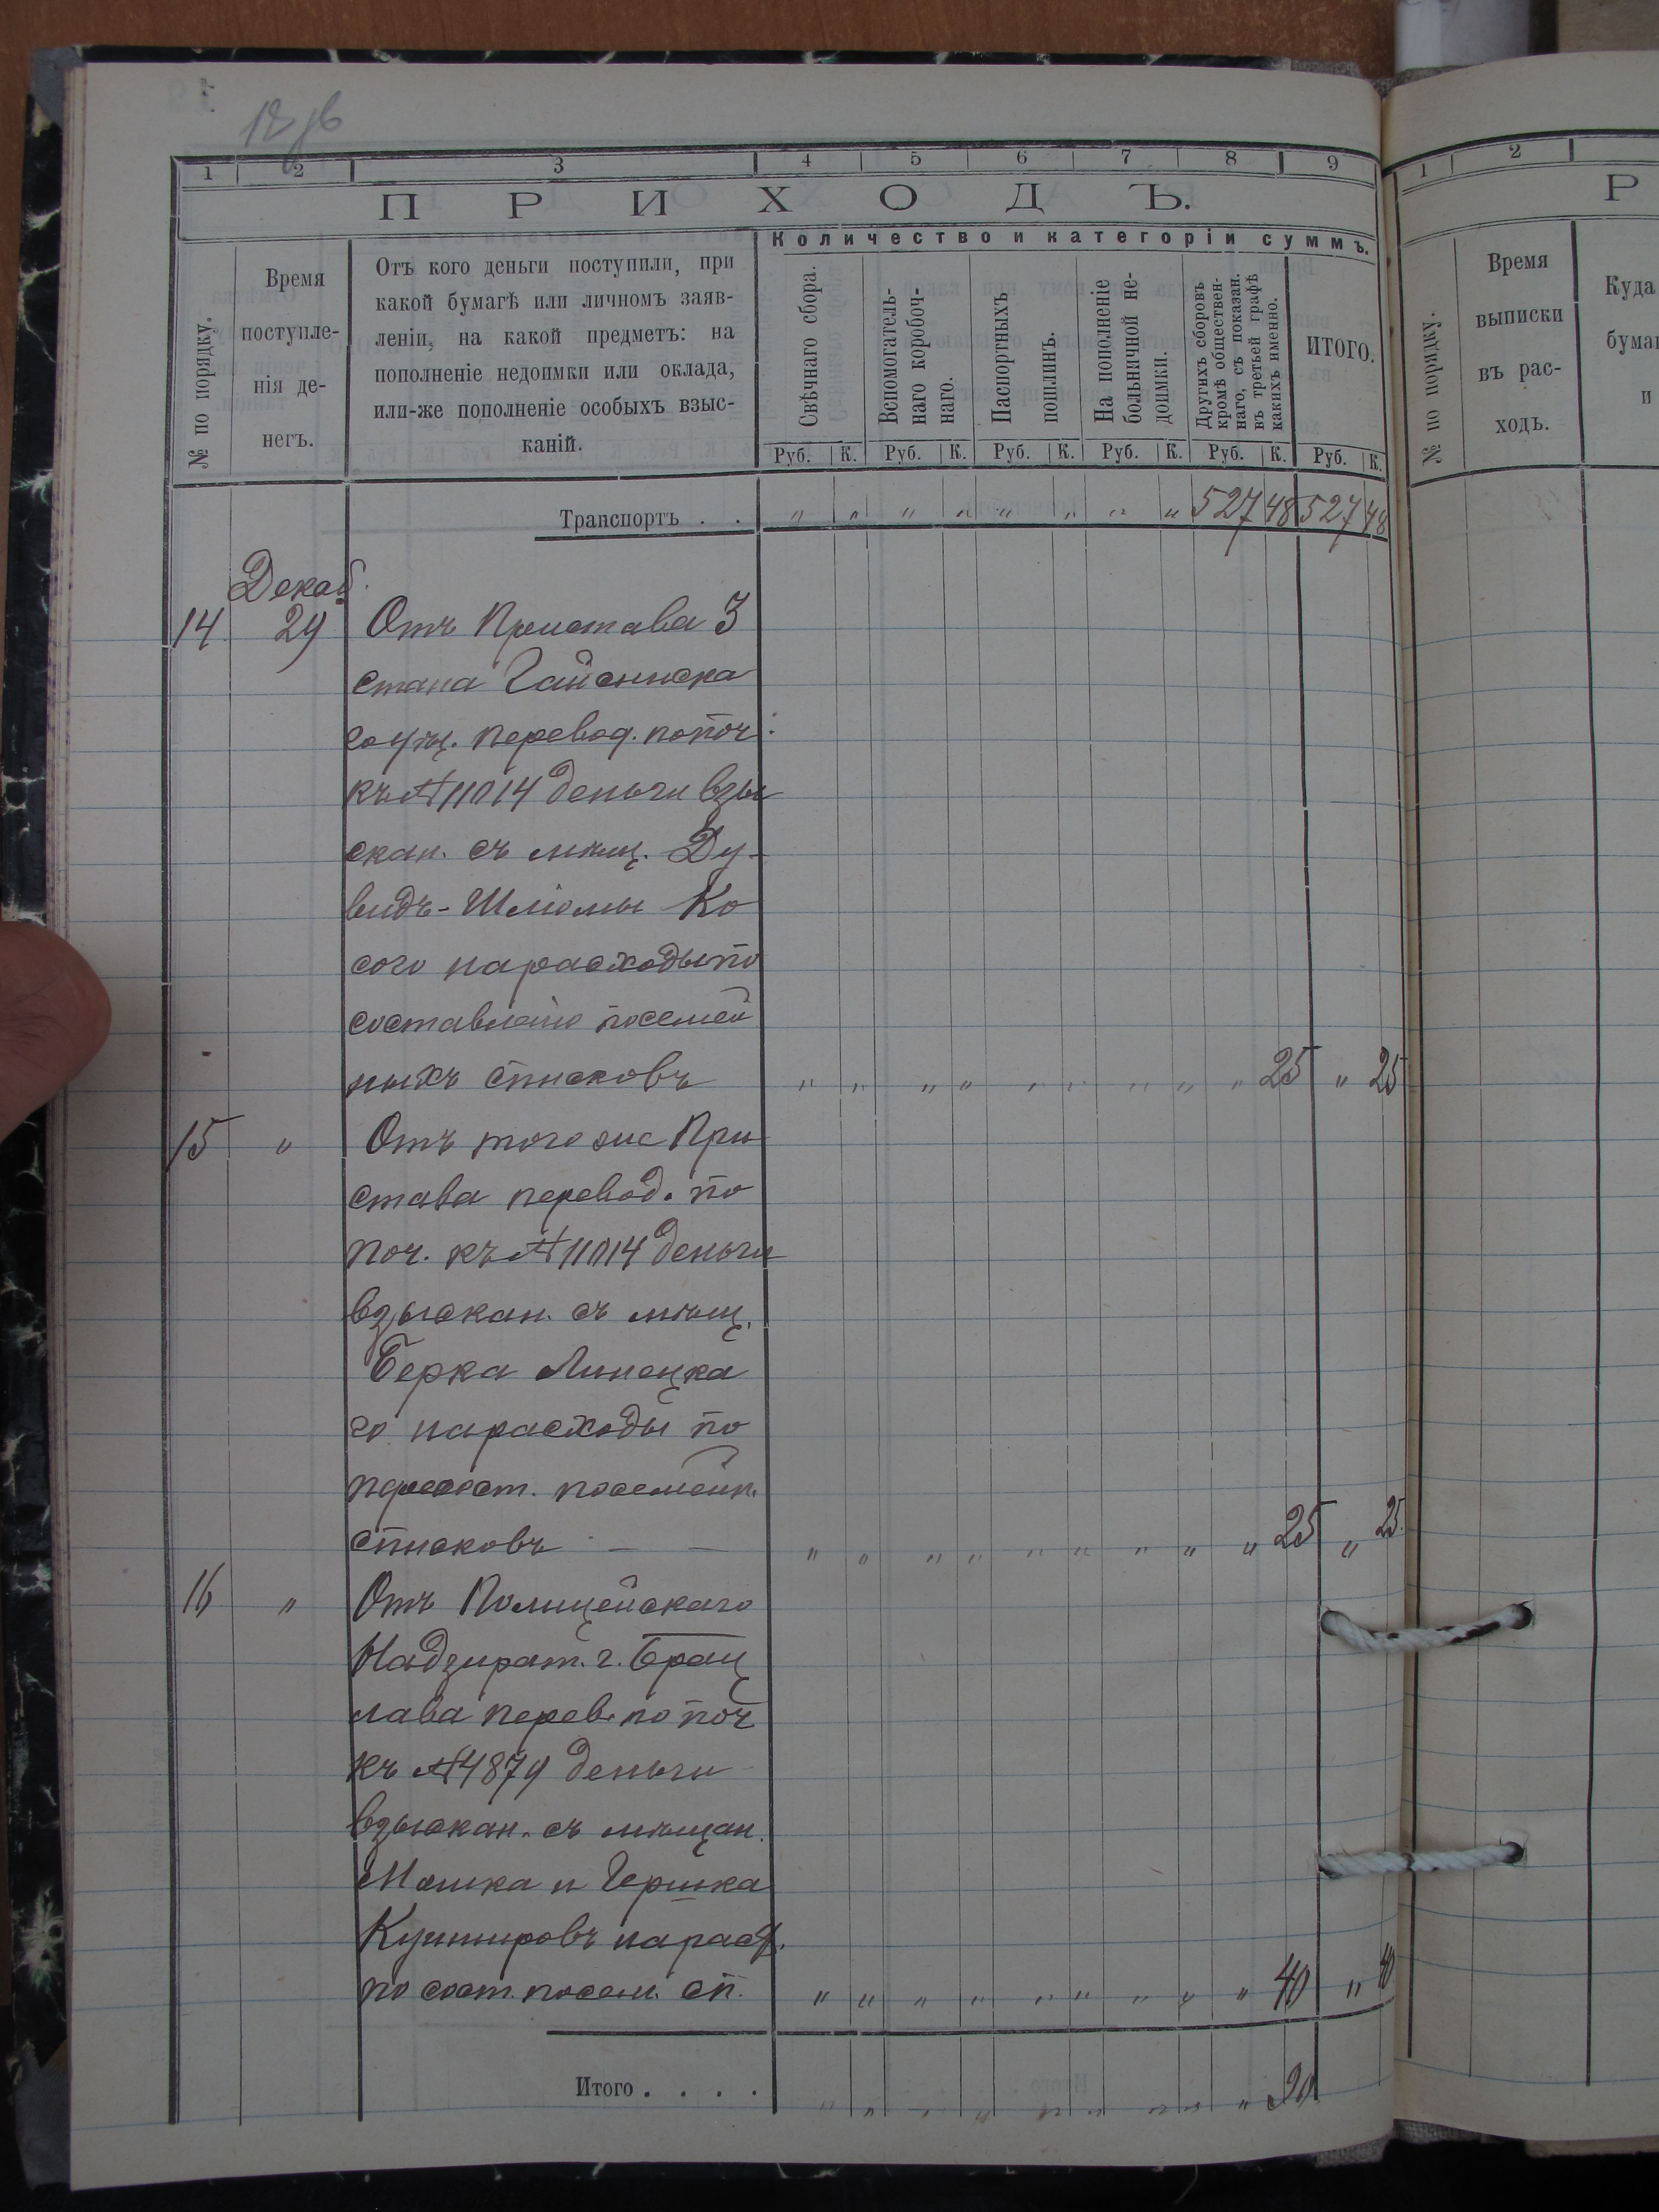 1 2 3 4 5 6 7 8 9
ПРИХОДЪ.
№ по порядку.
Время поступле-
нія де-
негъ.
Отъ кого деньги поступили, при
какой бумагѣ или личномъ заяв-
леніи, на какой предметъ: на
пополненіе недоимки или оклада,
или-же пополненіе особыхъ взыс-
каній.
Количество и категоріи суммъ.
Свѣчнаго сбора.
Вспомогатель-
наго коробоч-
наго.
Паспортныхъ
пошлинъ.
На пополненіе
больничной не-
доимки.
Другихъ сборовъ
кромѣ обществен-
наго, съ показан.
въ третьей графѣ
какихъ именно.
ИТОГО.
Руб. К. Руб. К. Руб. К. Руб. К. Руб. К. Руб. К.
Транспортъ . . „ „ „ „ „ „ „ „ 527 48 527 48
Декаб.
14 29 Отъ Пристава 3
стана Гайсинска
го уѣз. перевод. по поч.
къ № 11014 деньги взы
скан. съ мѣщ. Ду-
видъ-Шліомы Ко
сого на расходы по
составленію посемей
ныхъ списковъ „ „ „ „ „ „ „ „ „ 25 „ 25
15 „ Отъ того же При
става перевод. по
поч. къ № 11014 деньги
взыскан. съ мѣщ.
Берка Липецка
го на расходы по
посемейн.
списковъ — — „ „ „ „ „ „ „ „ „ 25 „ 25
16 „ Отъ Полицейскаго
Надзират. г. Брац
лава перев. по поч
къ № 4879 деньги
взыскан. съ мѣщан.
Мошка и Гершка
Кушнировъ на расх.
по сост. посем. сп. „ „ „ „ „ „ „ „ „ 40 „ 40
Итого . . . . „ „ „ „ „ „ „ „ „ 90
1 2
Р
№ по порядку.
Время
выписки
въ рас-
ходъ.
Куда
бума
и